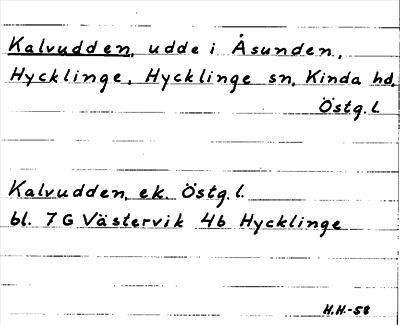 Kalvudden, udde i Åsunden,
Hycklinge, Hycklinge sn, Kinda hd,
Östg. l.
Kalvudden, ek. Östg. l.
bl. 7 G Västervik 4b Hycklinge
H.H.-58